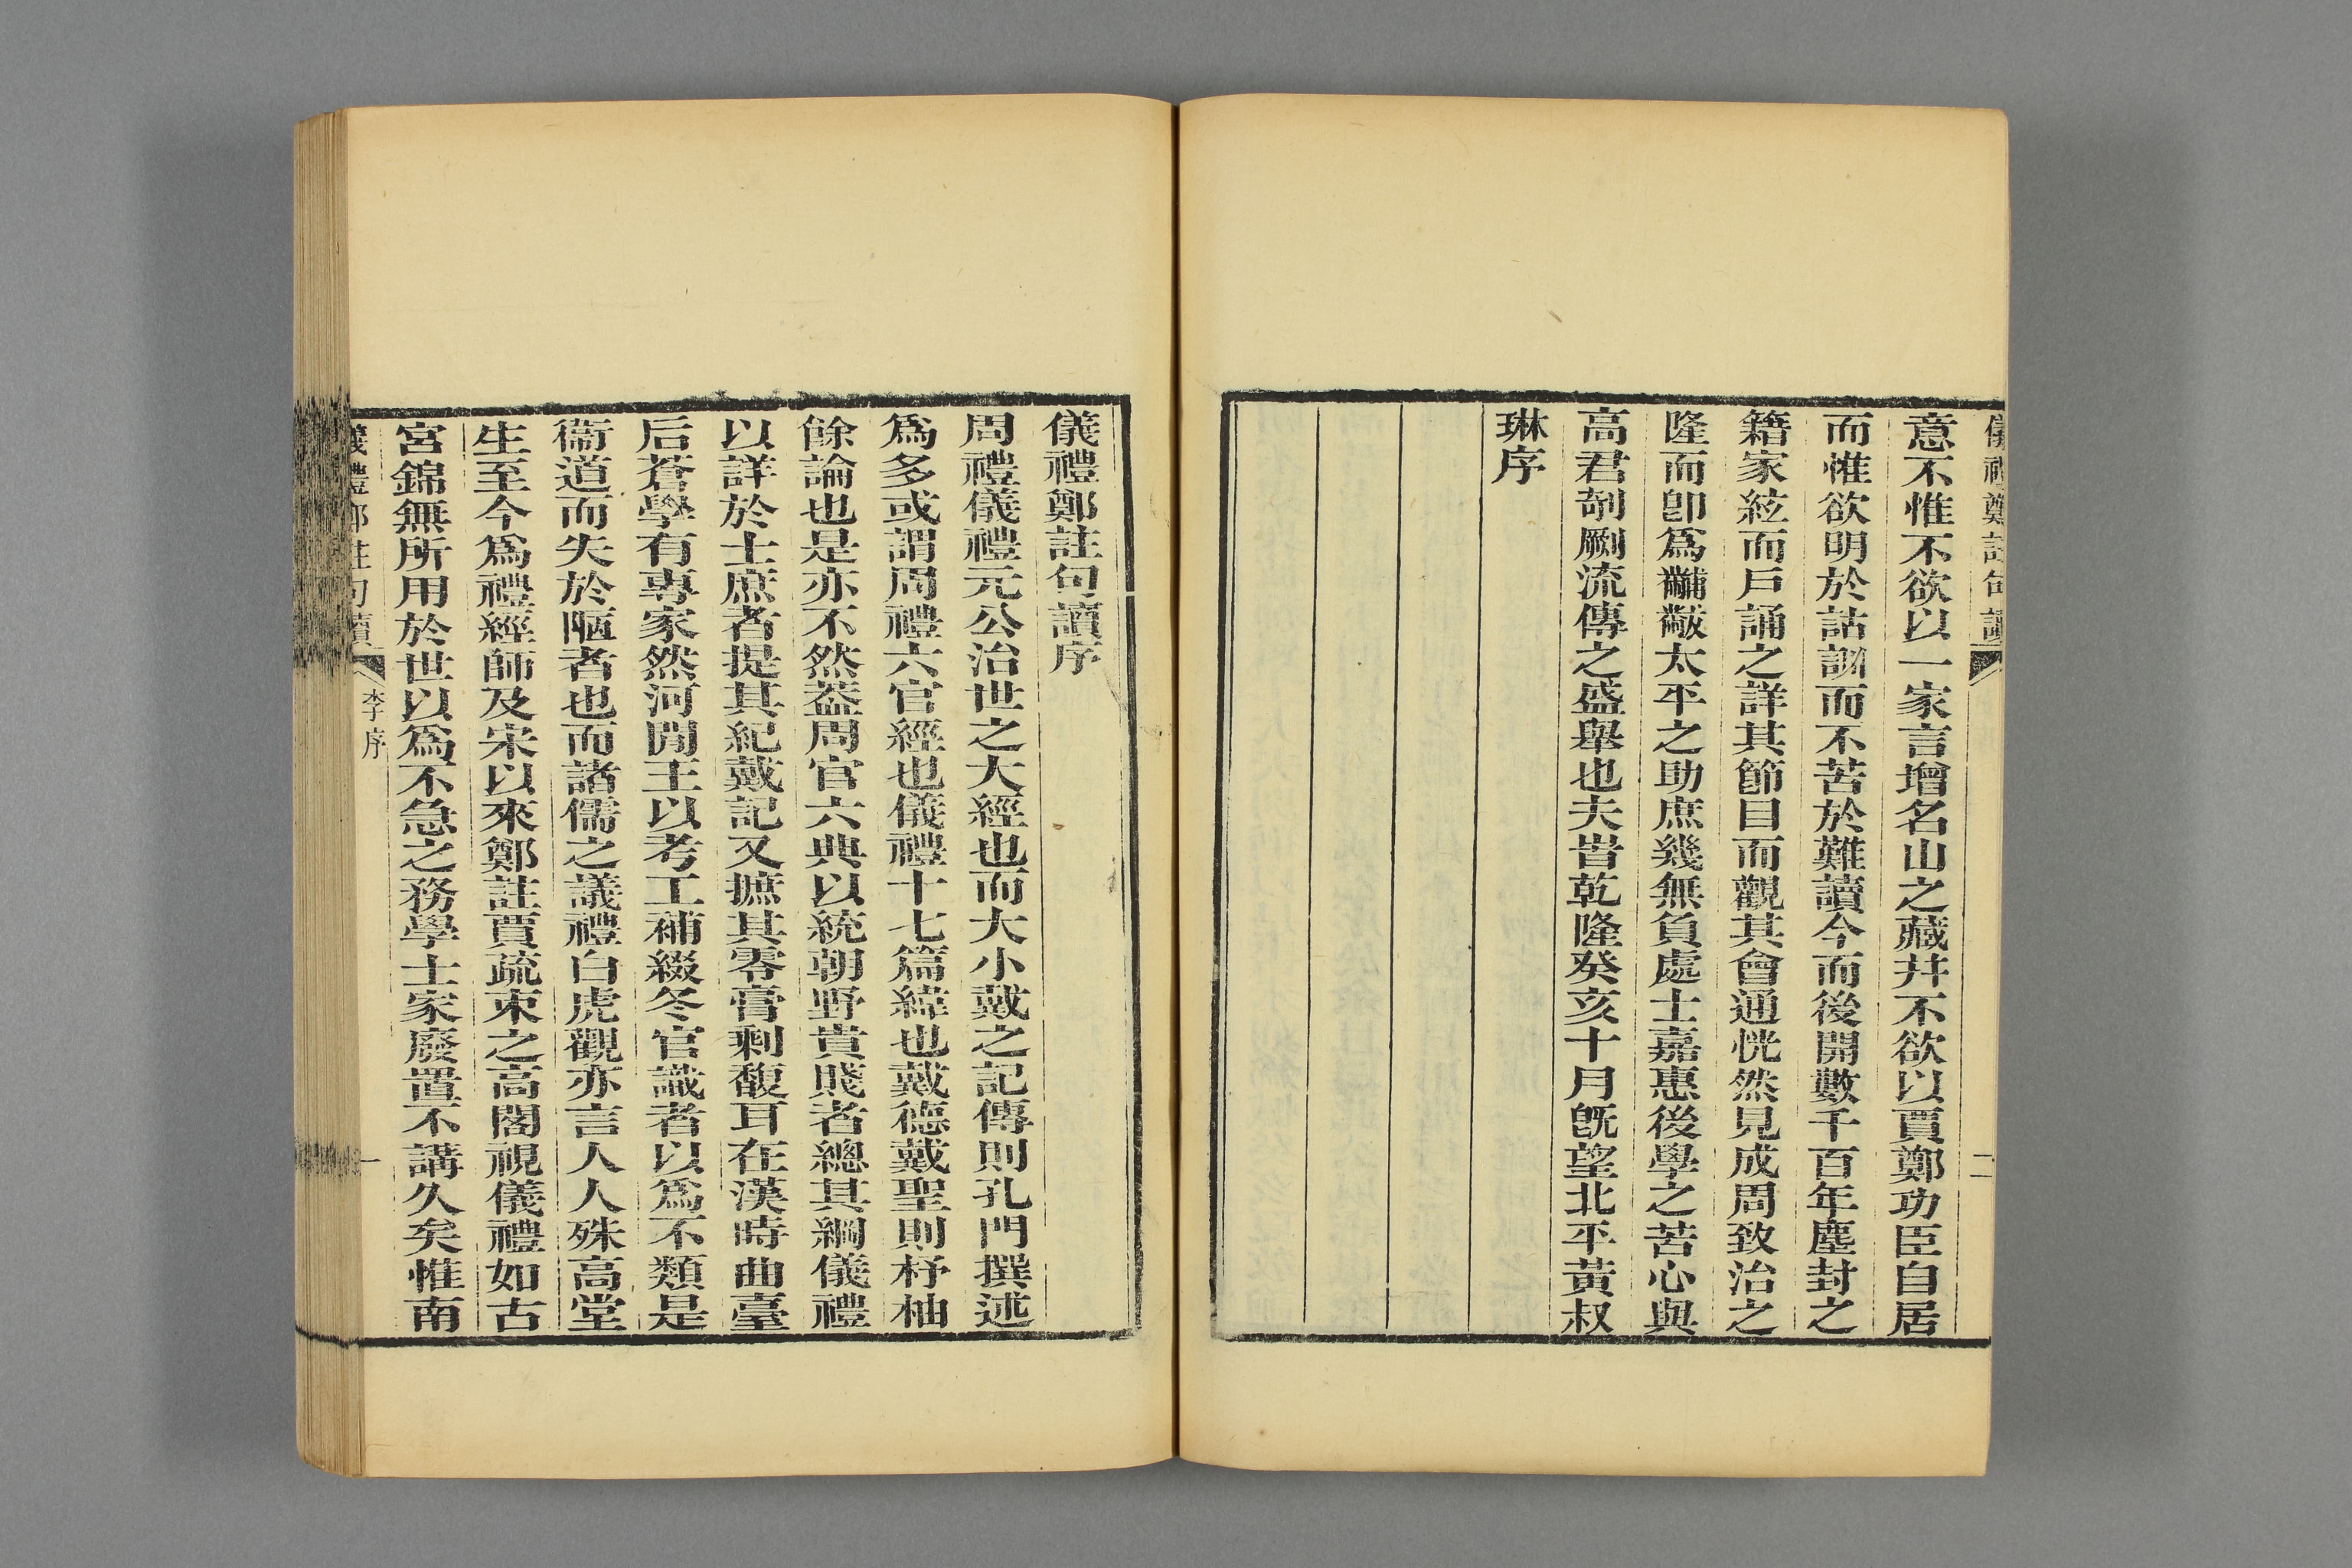 儀禮鄭註句讀
二
意不惟不欲以一家言增名山之藏并不欲以賈鄭功臣自居
而惟欲明於詁訓而不苦於難讀今而後開數千百年塵封之
籍家絃而戶誦之詳其節目而觀其會通恍然見成周致治之
隆而卽爲黼黻太平之助庶幾無負處士嘉惠後學之苦心與
高君剞劂流傳之盛舉也夫旹乾隆癸亥十月旣望北平黃叔
琳序
儀禮鄭註句讀序
周禮儀禮元公治世之大經也而大小戴之記傳則孔門撰述
爲多或謂周禮六官經也儀禮十七篇緯也戴德戴聖則杼柚
餘論也是亦不然葢周官六典以統朝野貴賤者總其綱儀禮
以詳於士庶者提其紀戴記又摭其零膏剩馥耳在漢時曲臺
后蒼學有專家然河閒王以考工補綴冬官識者以爲不類是
衞道而失於陋者也而諸儒之議禮白虎觀亦言人人殊高堂
生至今爲禮經師及宋以來鄭註賈疏束之高閣視儀禮如古
宮錦無所用於世以爲不急之務學士家廢置不講久矣惟南
儀禮鄭註句讀
李序
一